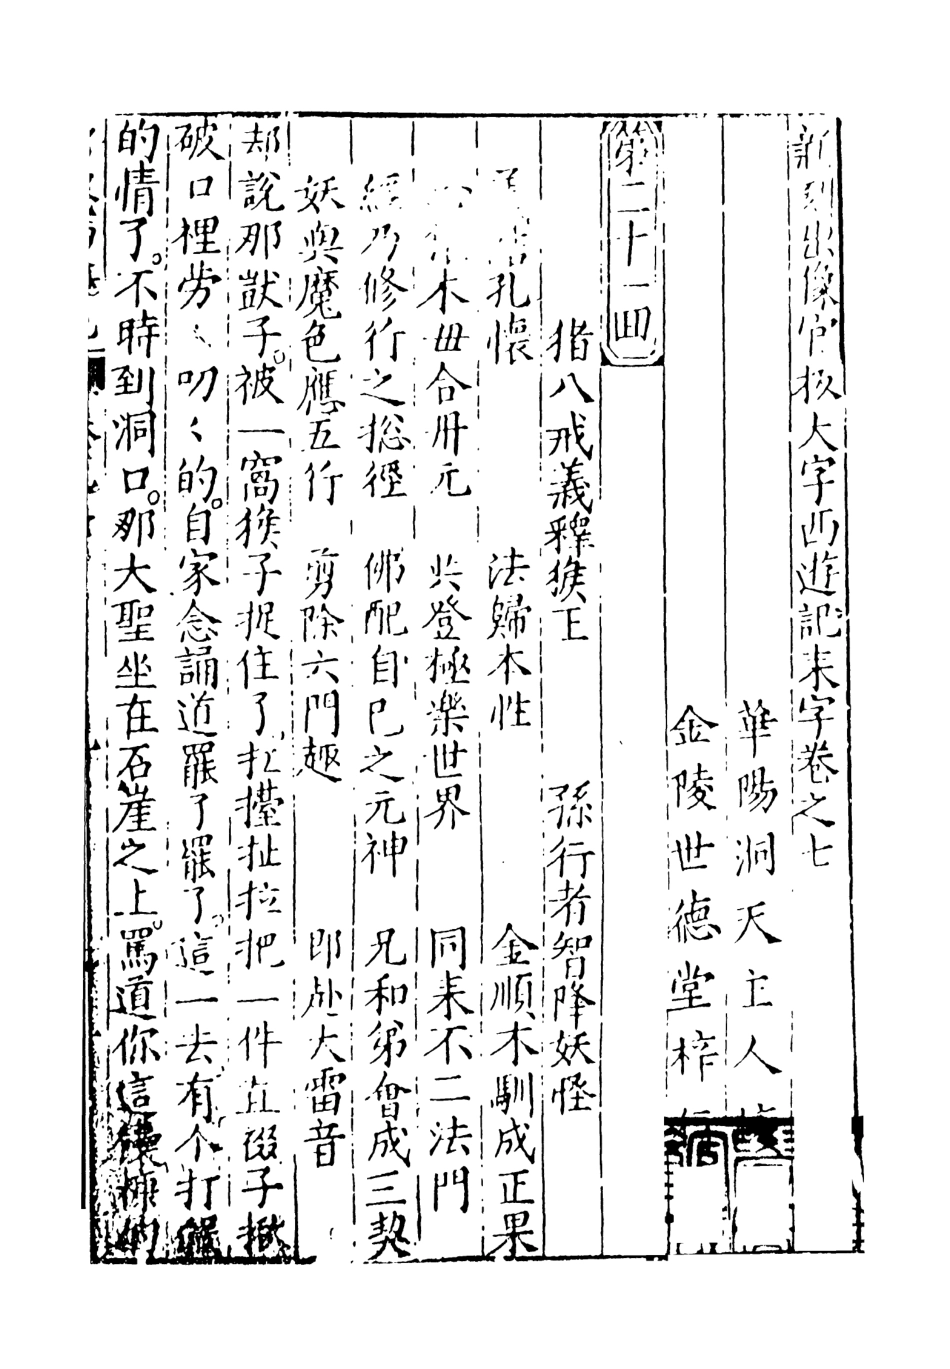 新刻出像官板大字西遊記耒字卷之七
華陽洞天主人
金陵世德堂梓
第三十一回
猪八戒義釋猴王　孫行者智降妖怪
孔懷　法歸本性　金順木馴成正果
木母合丹元　共登極樂世界　同耒不二法門
經乃修行之揔徑　佛配自己之元神　兄和弟會成三契
妖與魔色應五行　剪除六門趣　即赴大雷音
却說那獃子。被一窩猴子捉住了扛擡扯拉把一件直裰子揪
破口裡劳〻叨〻的。自家念誦道罷了罷了。這一去有个打殺
的情了。不時到洞口。那大聖坐在石崖之上。罵道你這饢糠的